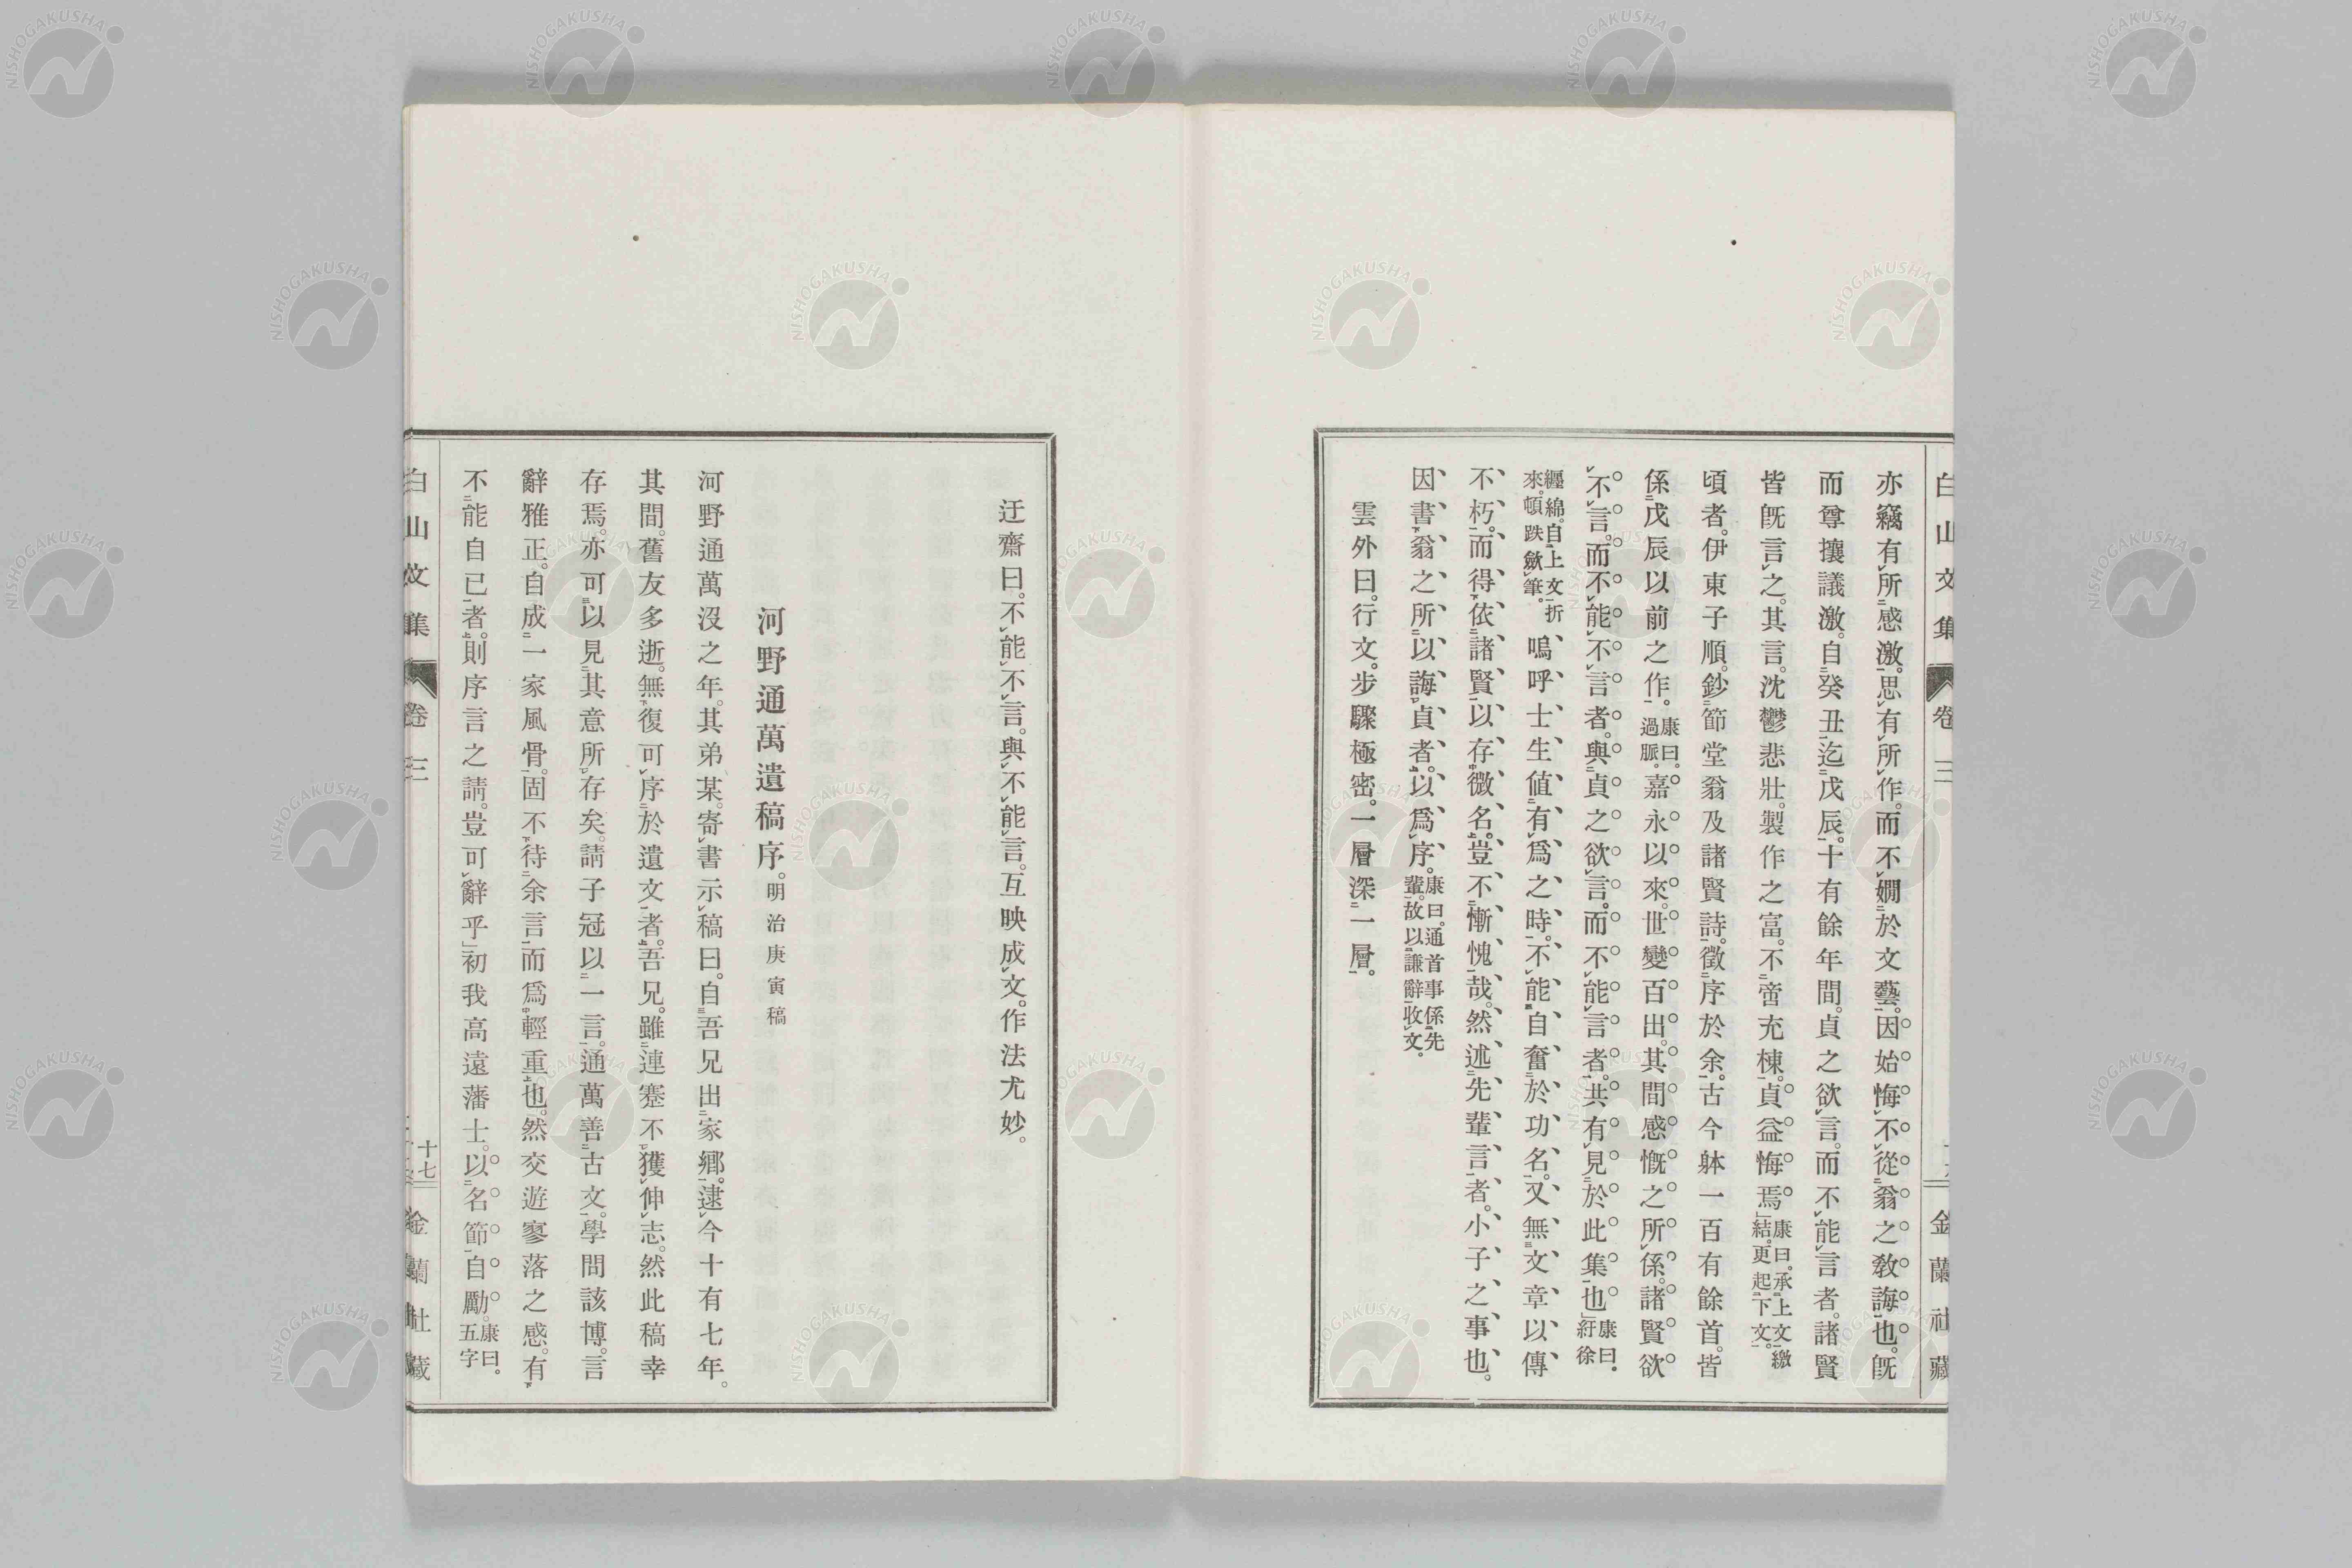 白山文集 卷三 金蘭社藏
亦竊有所感激。思有所作。而不嫺於文藝。因始悔不從翁之敎誨也。旣
而尊攘議激。自癸丑迄戊辰。十有餘年間。貞之欲言。而不能言者。諸賢
皆旣言之。其言。沈鬱悲壯。製作之富。不啻充棟。貞益悔焉」康曰。承上文繳
結。更起下文。
頃者。伊東子順。鈔節堂翁及諸賢詩。徵序於余。古今躰一百有餘首。皆
係戊辰以前之作。康曰。
過脈。嘉永以來。世變百出。其間感慨之所係。諸賢欲
不言。而不能不言者。與貞之欲言。而不能言者。共有見於此集也」康曰。
紆徐
纒綿。自上文折
來。頓跌斂筆。嗚呼士生値有爲之時。不能自奮於功名。又無文章以傳
不朽。而得依諸賢以存微名。豈不慚愧哉。然述先輩言者。小子之事也。
因書翁之所以誨貞者。以爲序。康曰。通首事係先
輩。故以謙辭收文。
雲外曰。行文。步驟極密。一層深一層。
迂齋曰。不能不言。與不能言。互映成文。作法尤妙。
河野通萬遺稿序。明治庚寅稿
河野通萬沒之年。其弟某。寄書示稿曰。自吾兄出家鄕。逮今十有七年。
其間。舊友多逝。無復可序於遺文者。吾兄。雖連蹇不獲伸志。然此稿幸
存焉。亦可以見其意所存矣。請子冠以一言。通萬善古文。學問該博。言
辭雅正。自成一家風骨。固不待余言而爲輕重也。然交遊寥落之感。有
不能自已者。則序言之請。豈可辭乎」初我高遠藩士。以名節自勵。康曰。
五字
白山文集 卷三 十七 金蘭社藏